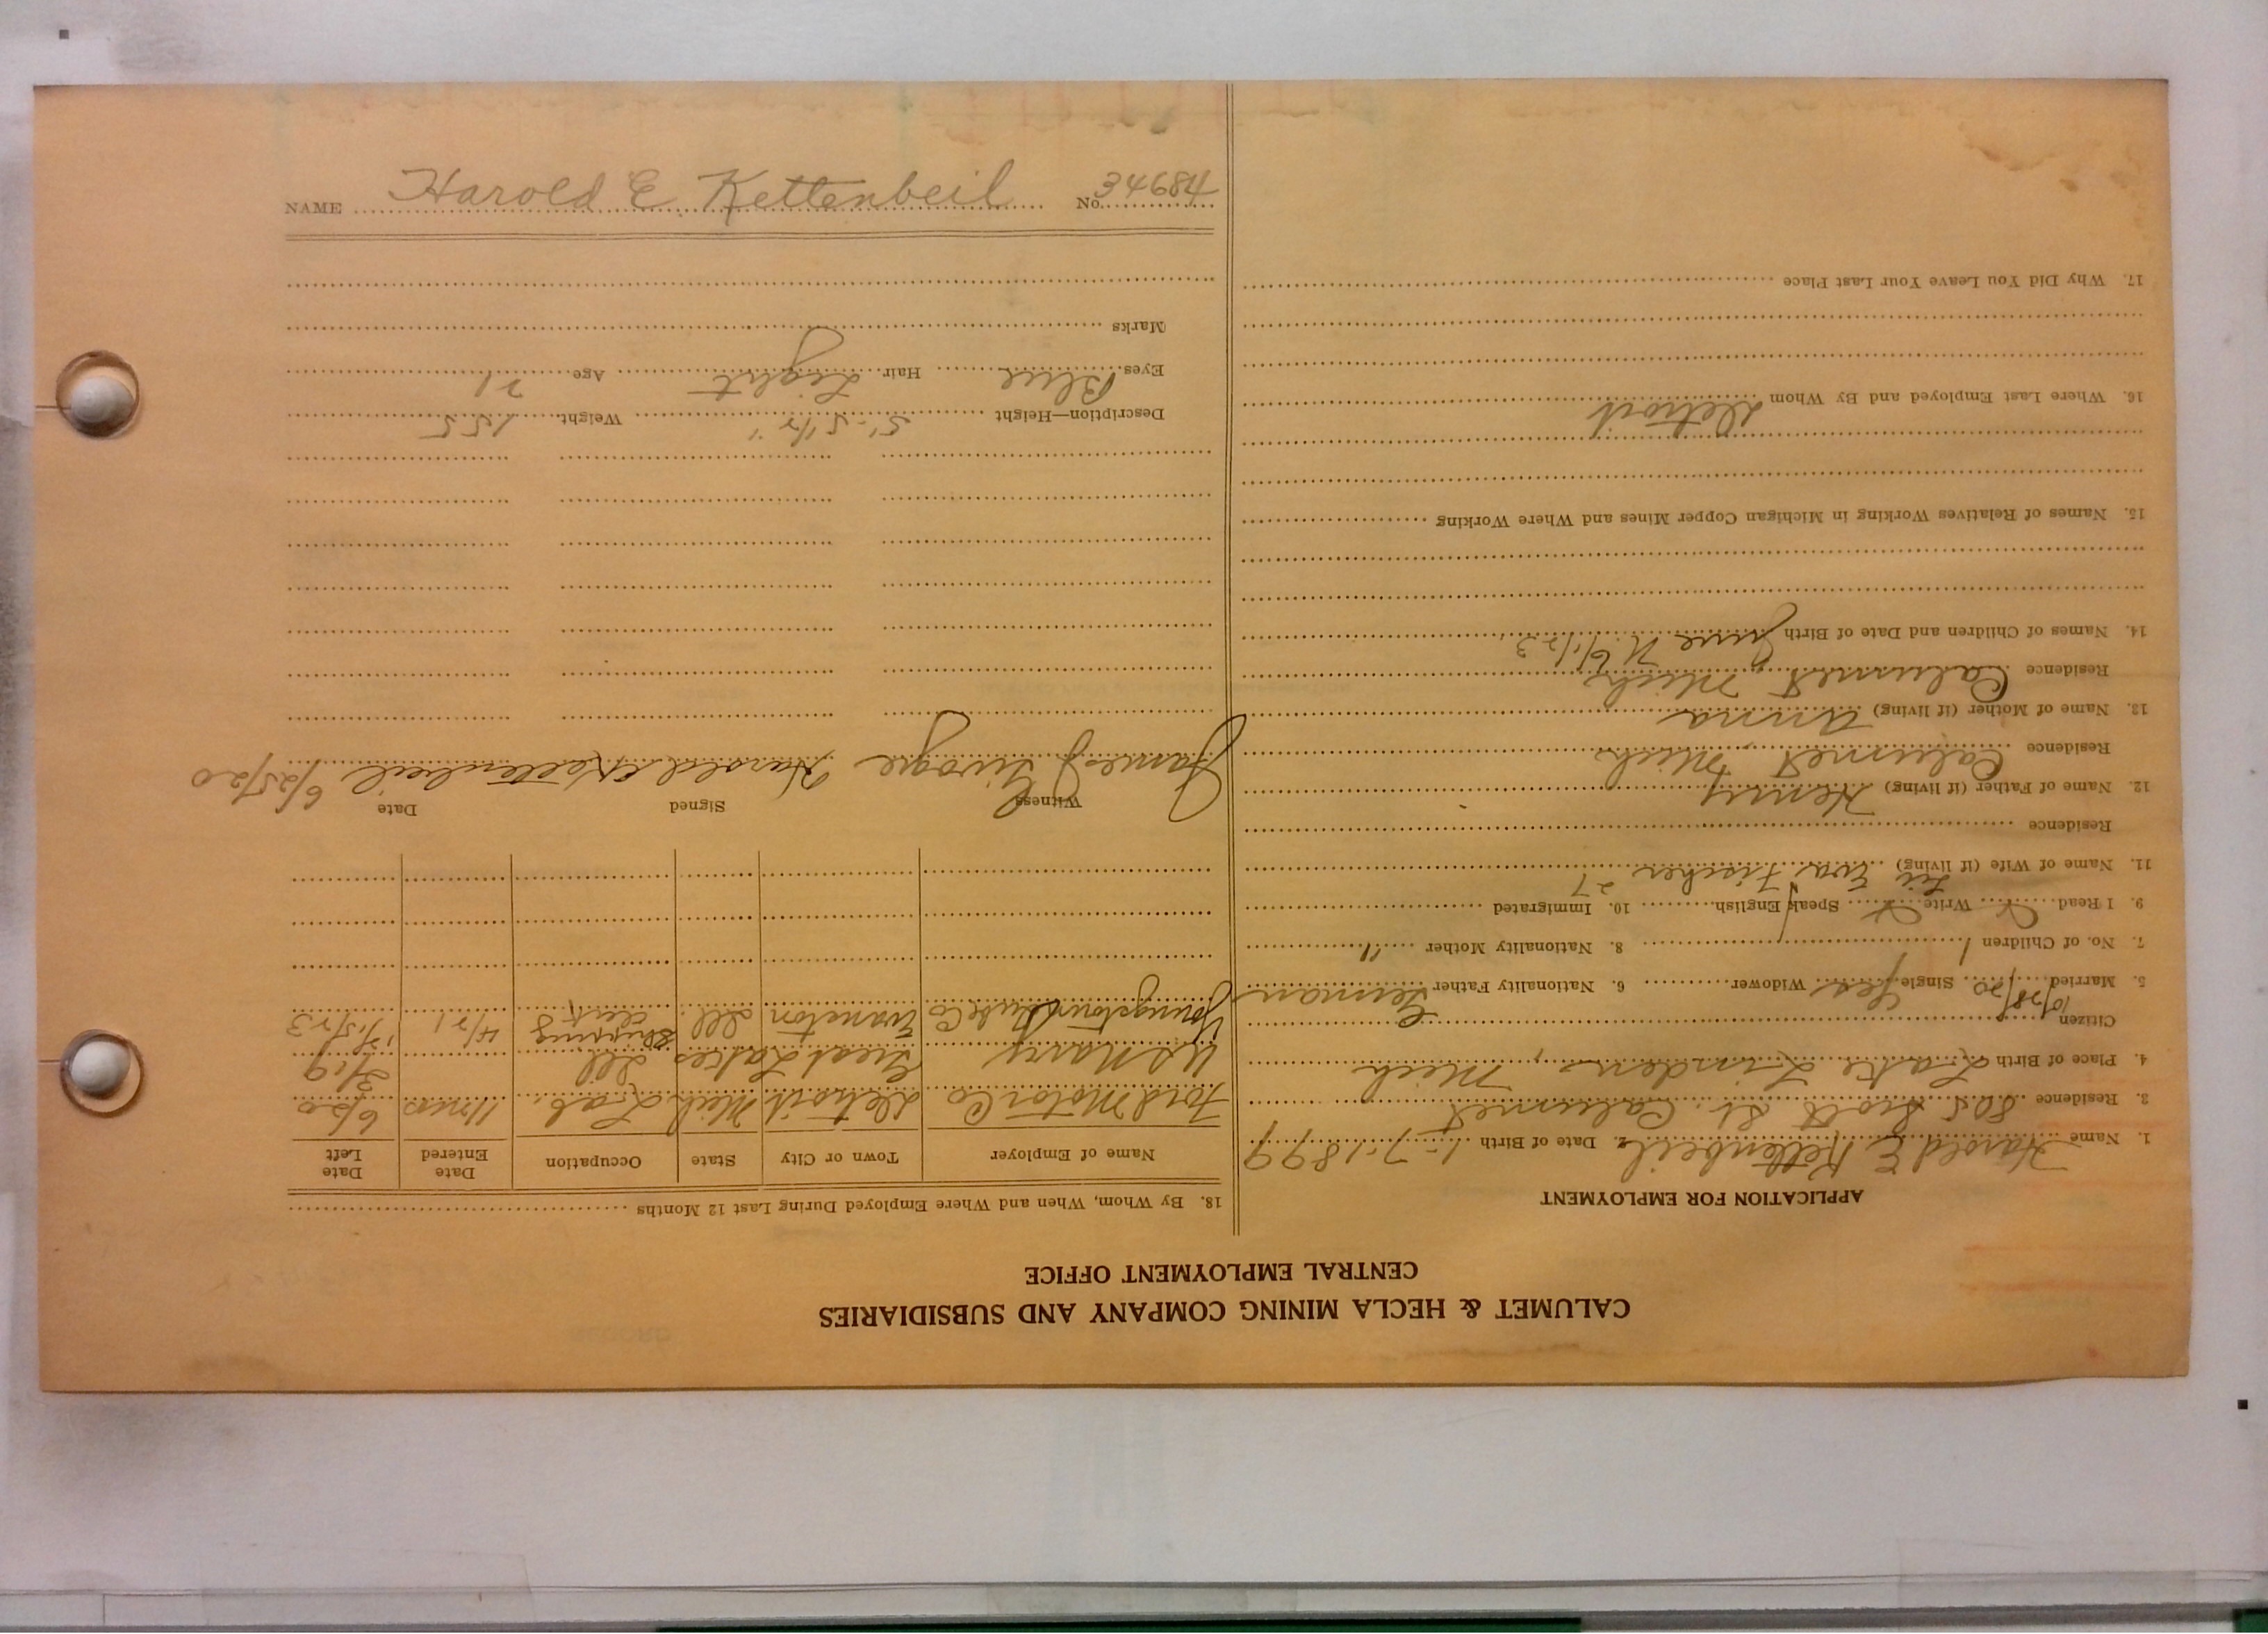 CALUMET & HECLA MINING COMPANY AND SUBSIDIARIES
CENTRAL EMPLOYMENT OFFICE
APPLICATION FOR EMPLOYMENT
1. Name Harold E Kettenbeil 2. Date of Birth 1-7-1899
3. Residence 805 Scott St. Calumet
4. Place of Birth Lake Linden, Mich
Citizen
5. Married 10/28/20 Single Yes Widower 6. Nationality Father German
7. No. of Children 1 8. Nationality Mother "
9. I Read Write Speak English 10. Immigrated
11. Name of Wife (if living) Eva Fischer 27
Residence
12. Name of Father (if living) Henry
Residence Calumet Mich
13. Name of Mother (if living) Anna
Residence Calumet Mich
14. Names of Children and Date of Birth June N. 6/1/23
15. Names of Relatives Working in Michigan Copper Mines and Where Working
16. Where Last Employed and By Whom Detroit
17. Why Did You Leave Your Last Place
18. By Whom, When and Where Employed During Last 12 Months
Name of Employer Town or City State Occupation Date Entered Date Left
Ford Motor Co Detroit Mich Lab. 11 mos 6/20
U S Navy Great Lakes Ill 3/19
Youngstown Tube Co Evanston Ill. Shipping Clerk 4/21 12/15/23
Witness Signed Date
James J Harold Kettenbeil 6/25/20
Description—Height 5'-5 1/2" Weight 155
Eyes Blue Hair Light Age 21
Marks
NAME Harold E. Kettenbeil No. 34684